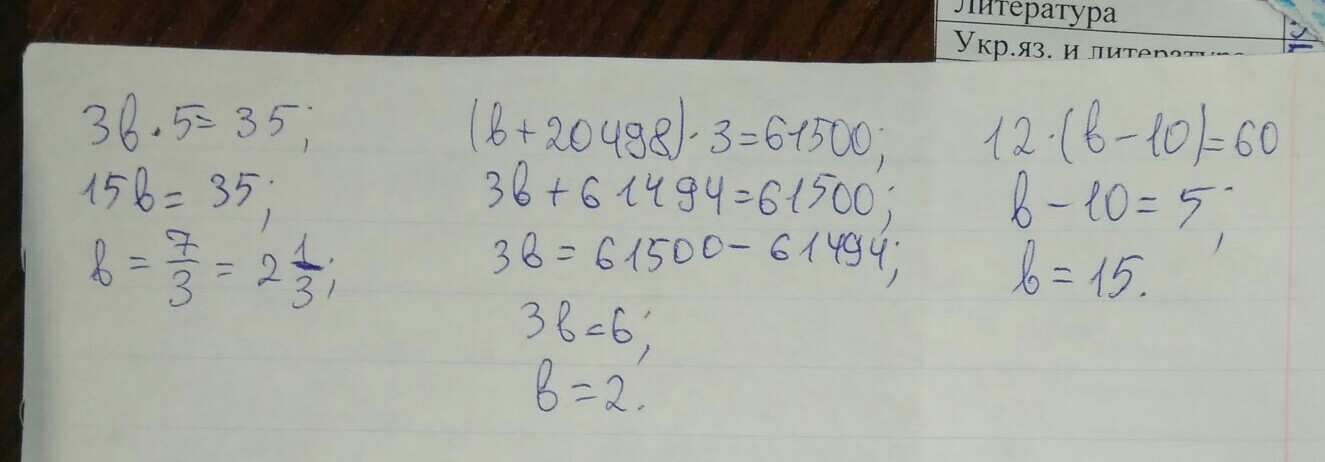 Литература
Укр.яз. и литература
3в · 5 = 35;
15в = 35;
в = 7/3 = 2 1/3;
(в + 20498) · 3 = 61500;
3в + 61494 = 61500;
3в = 61500 − 61494;
3в = 6;
в = 2.
12 · (в − 10) = 60
в − 10 = 5;
в = 15.